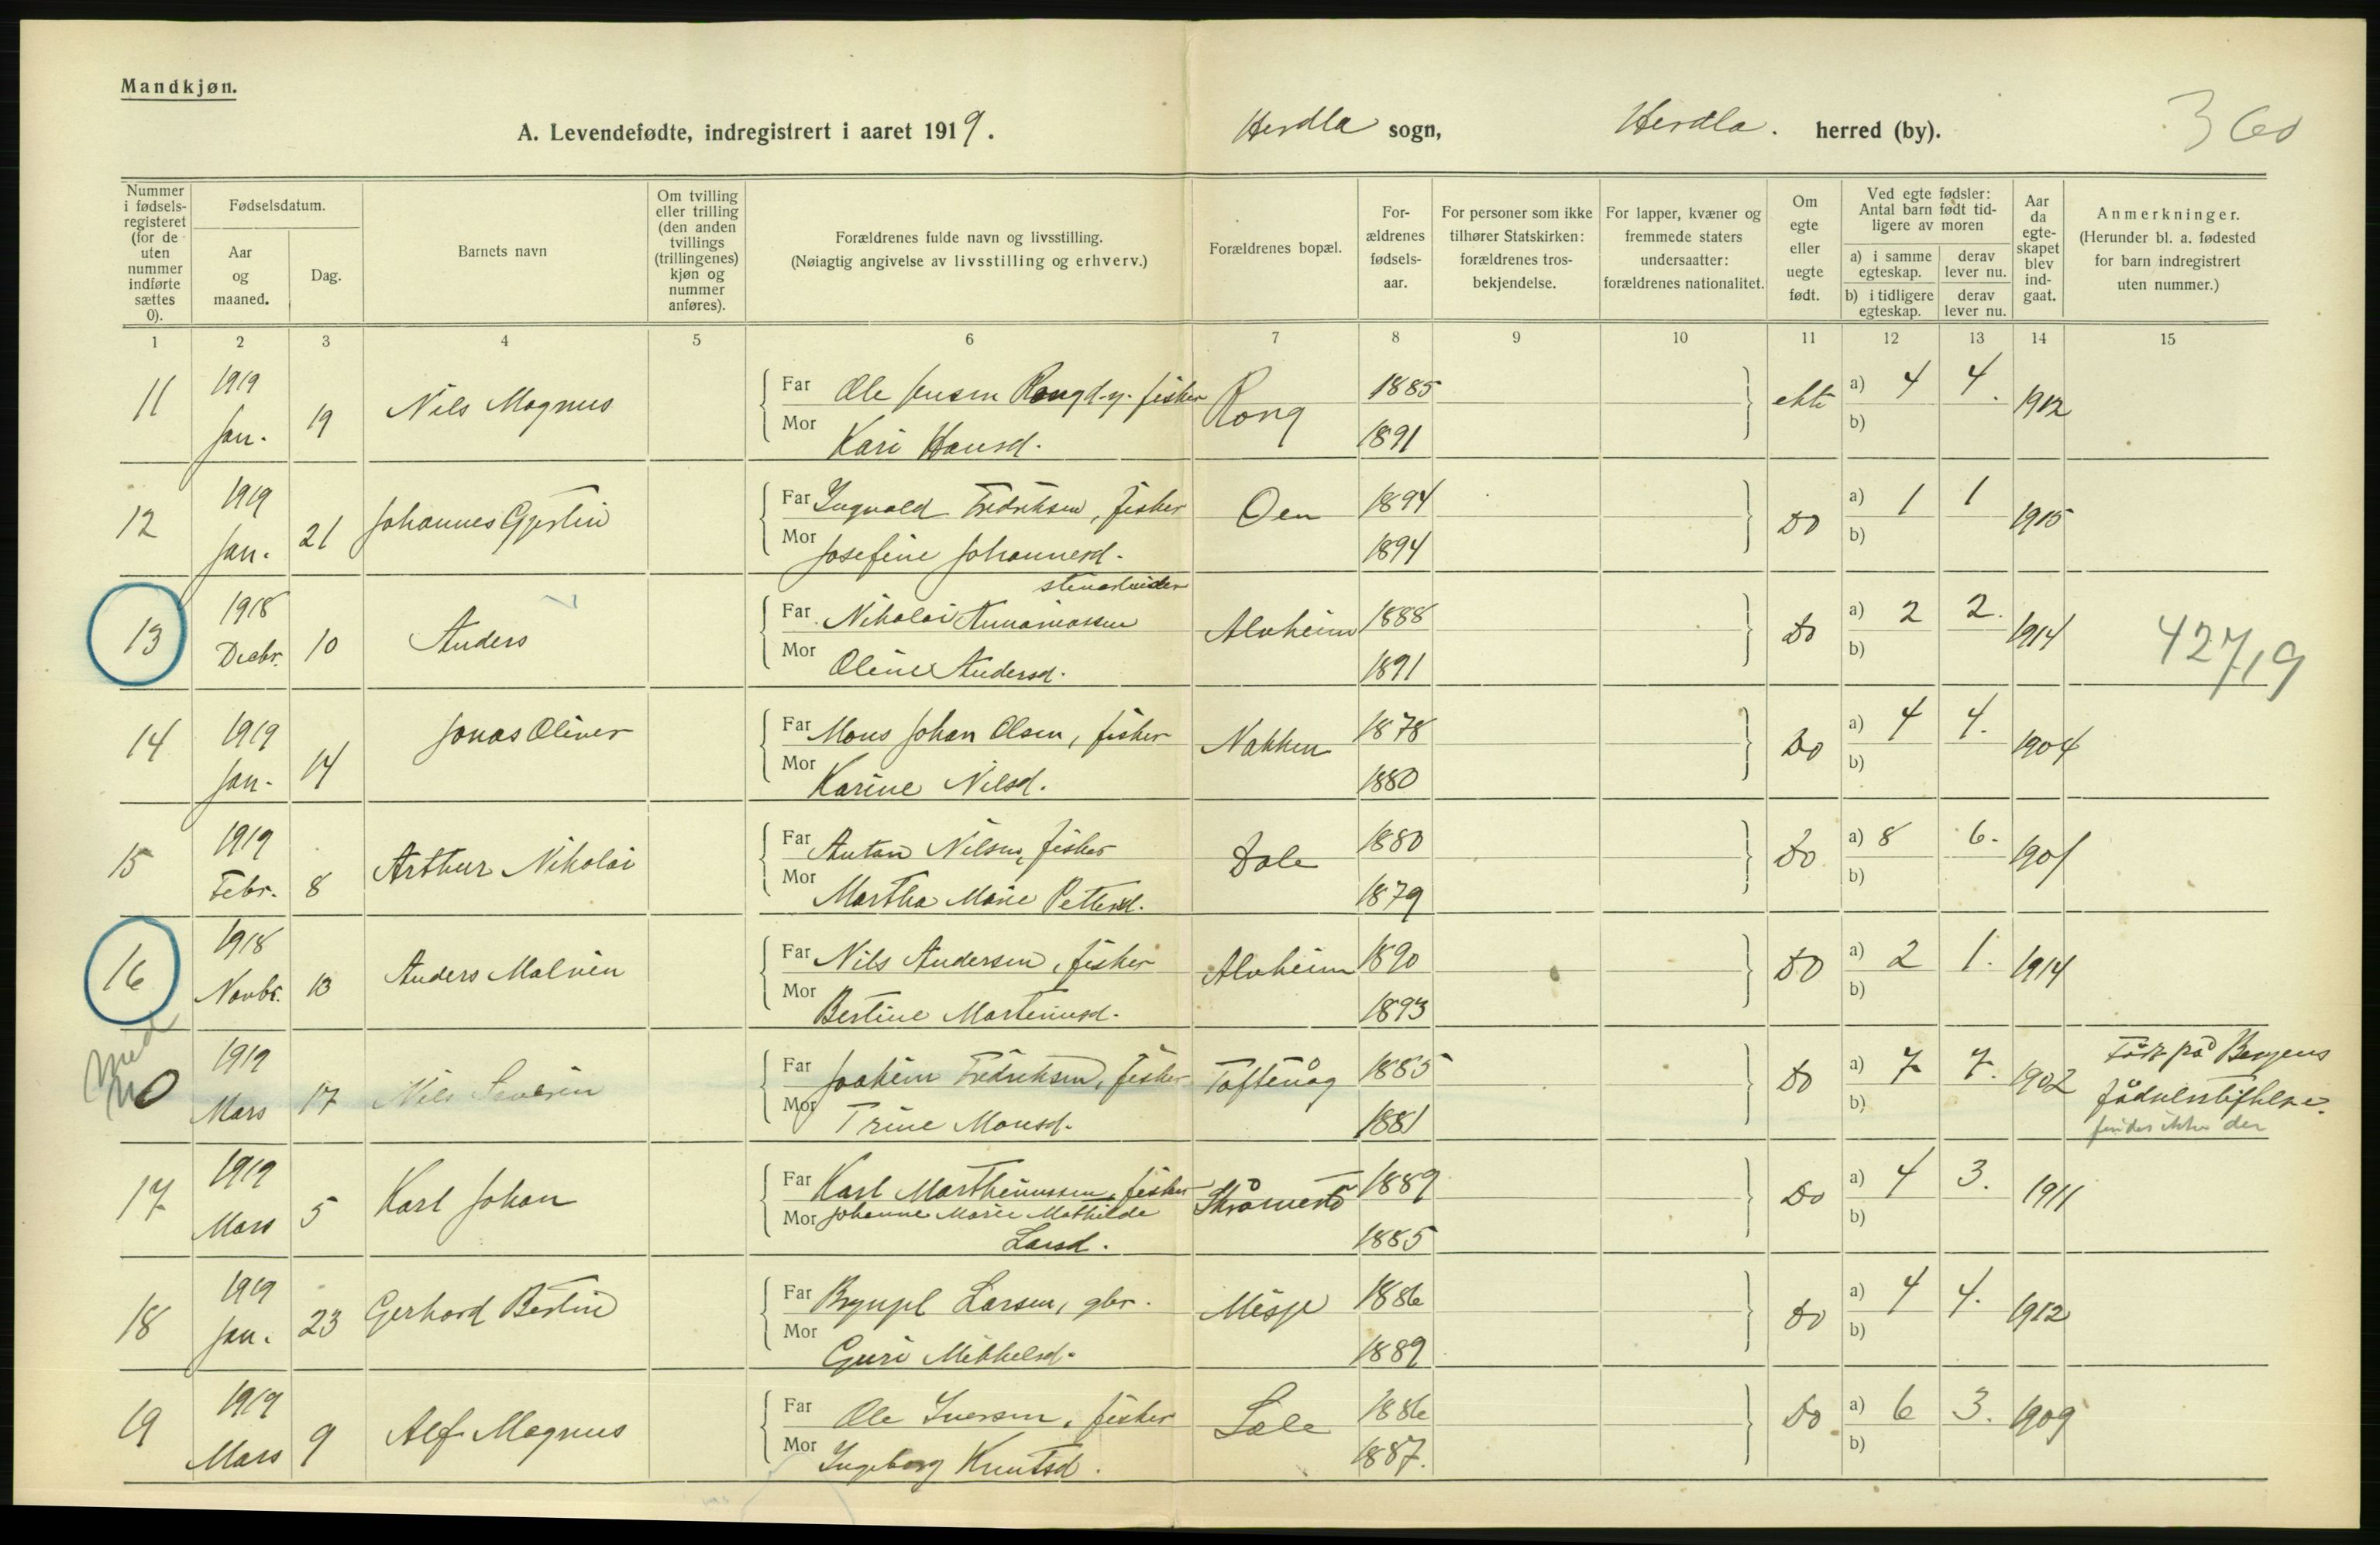 Mandkjøn.
A. Levendefødte, indregistrert i aaret 1919. Herdla sogn, Herdla. herred (by). 360
Nummer i fødsels-registeret (for de uten nummer indførte sættes 0).
Fødselsdatum.
Aar og maaned.
Dag.
Barnets navn
Om tvilling eller trilling (den anden tvillings (trillingenes) kjøn og nummer anføres).
Forældrenes fulde navn og livsstilling.
(Nøiagtig angivelse av livsstilling og erhverv.)
Forældrenes bopæl.
For-ældrenes fødsels-aar.
For personer som ikke tilhører Statskirken: forældrenes tros-bekjendelse.
For lapper, kvæner og fremmede staters undersaatter: forældrenes nationalitet.
Om egte eller uegte født.
Ved egte fødsler: Antal barn født tid-ligere av moren
a) i samme egteskap. derav lever nu.
b) i tidligere egteskap. derav lever nu.
Aar da egte-skapet blev ind-gaat.
Anmerkninger.
(Herunder bl. a. fødested for barn indregistrert uten nummer.)
1 2 3 4 5 6 7 8 9 10 11 12 13 14 15
11 1919 Jan. 19 Nils Magnus
Far Ole Jensen Rong fisker Rong 1885 ekte a) 4 4. 1912
Mor Kari Hansd. 1891 b)
12 1919 Jan. 21 Johannes Gjertin
Far Ingvald Fredriksen, fisker Oen 1894 Do a) 1 1 1915
Mor Josefine Johannesd. 1894 b)
stenarbeider
13 1918 Decbr. 10 Anders
Far Nikolai Annaniassen Alvheim 1888 Do a) 2 2. 1914 42719
Mor Oline Andersd. 1891 b)
14 1919 Jan. 14 Jonas Oliver
Far Mons Johan Olsen, fisker Nakken 1878 Do a) 4 4. 1904
Mor Karine Nilsd. 1880 b)
15 1919 Febr. 8 Arthur Nikolai
Far Anton Nilsen, fisker Dale 1880 Do a) 8 6. 1901
Mor Martha Marie Pettersd. 1879 b)
16 1918 Novbr. 13 Anders Malvin
Far Nils Andersen, fisker Alvheim 1890 Do a) 2 1. 1914
Mor Bertine Martinusd. 1893 b)
med
0 1919 Mars 17 Nils Severin
Far Joakim Fredriksen, fisker Toftevåg 1885 Do a) 7 7. 1902 Født på Bergens
Mor Trine Monsd. 1881 b) fødselsstiftelse.
findes ikke der
17 1919 Mars 5 Karl Johan
Far Karl Marthinussen, fisker Skråmestø 1889 Do a) 4 3. 1911
Mor Johanne Marie Mathilde
Larsd. 1885 b)
18 1919 Jan. 23 Gerhard Bertin
Far Brynjel Larsen, gbr. Misje 1886 Do a) 4 4. 1912
Mor Guri Mikkelsd. 1889 b)
19 1919 Mars 9 Alf Magnus
Far Ole Iversen, fisker Sæle 1886 Do a) 6 3. 1909
Mor Ingeborg Knutsd. 1887. b)